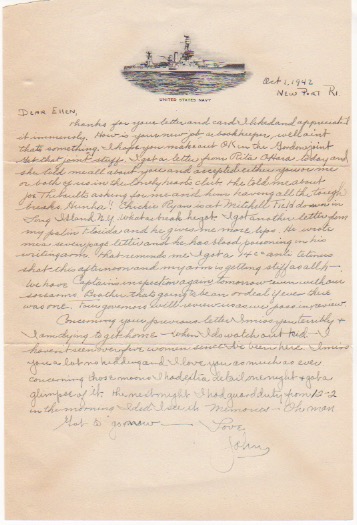 UNITED STATES NAVY
Oct 1, 1942
New Port RI.
Dear Ellen,
Thanks for your letter and card I liked and appreciated
it immensely. How is your new job a bookeeper, well aint
thats something. I hope you make out OK in the
Get that joint stuff. I got a letter from Rita Ohara today and
she told me all about you and
or both of us in the lonely hearts club. She told me about
Joe Thibeult asking for me and him having all the tough
breaks. Chickie Ryan is at Mitchell Field down in
Long Island N.Y. what a break he got. I got another letter from
my pal in Florida and he gives me more tips. He wrote
me a seven page letter and he has blood poisoning in his
writing arm. That reminds me I got a tetanus
shot this afternoon and my arm is getting stiff as all h—
We have Captains inspection again tomorrow
Brother this is going to be an ordeal if ever there
was one. The governor will review us as we pass in review.
Concerning your previous letter I miss you terribly &
I am dying to get home — when I do watch out kid. I
havent seen women since Ive been here. I miss
you a lot no kidding and I love you as much as ever
concerning those moons I had detail one night & got a
glimpse of it. The next night I had guard duty from 12-2
in the morning I did I see it. Memories — Oh man
Love
John